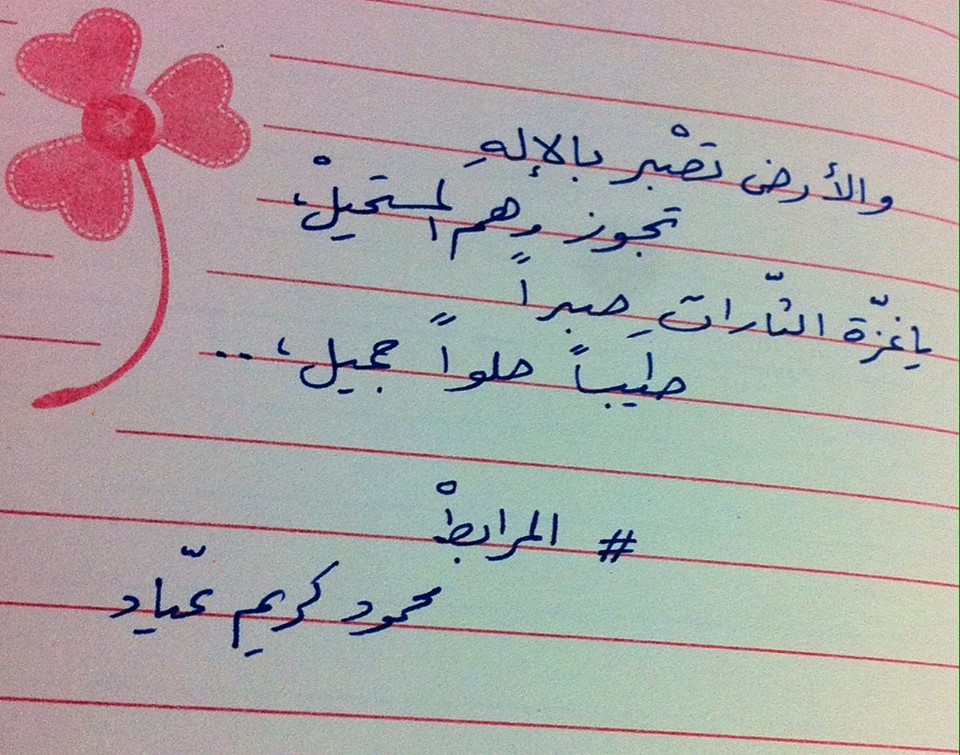 والأرض تصْبر بالإلهِ
تجوز وهم المستحيلْ،
ياغزّة الثّارات صبراً
طيباً حلواً جميل،..
# المرابطْ
محمود كريم عيّاد